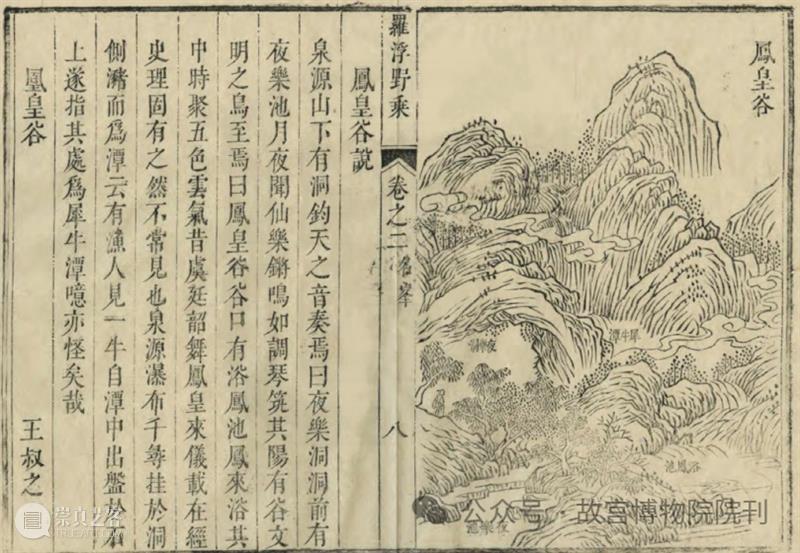 鳳皇谷
犀牛潭
夜樂洞
浴鳳池
羅浮野乘
卷之二 名峯
八
鳳皇谷說
泉源山下有洞鈞天之音奏焉曰夜樂洞洞前有
夜樂池月夜聞仙樂鏘鳴如調琴筑其陽有谷文
明之鳥至焉曰鳳皇谷谷口有浴鳳池鳳來浴其
中時聚五色雲氣昔虞廷韶舞鳳皇來儀載在經
史理固有之然不常見也泉源瀑布千尋挂於洞
側瀦而爲潭云有漁人見一牛自潭中出盤於石
上遂指其處爲犀牛潭噫亦怪矣哉
鳳皇谷 王叔之
公众号 · 故宫博物院院刊
崇真艺客